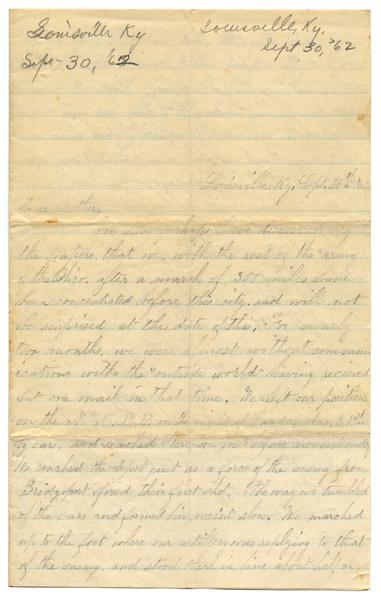 Louisville Ky
Sept 30, 62
Louisville, Ky.
Sept 30, '62
Louisville, Ky, Sept. 30th
Dear
You have perhaps have
the papers, that we, with the rest of the army
of the Ohio, after a march of 300 miles have
been concentrated before this city, and will not
be surprised at the date of this. For nearly
two months, we were almost without commun-
ications with the "outside world" having received
but one mail in that time. We left our position
on the on the night of Sunday 31st
by car, and reached before
We reached the depot just as a force of the enemy from
Bridgeport fired their first shot. The way we tumbled
of the cars and formed line, wasn't slow. We marched
up to the fort where our artillery was replying to that
of the enemy, and stood there in line about half an